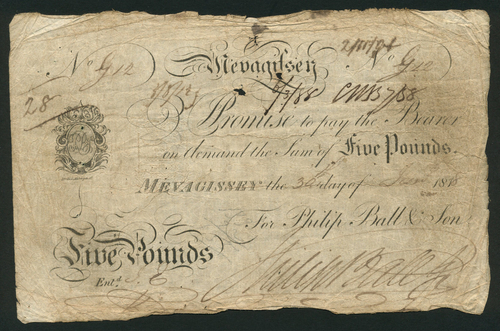 No G912 Mevagissey No G912
28
3/88 CMB 7/88
I Promise to pay the Bearer
on demand the Sum of Five Pounds.
MEVAGISSEY the day of 18
For Philip Ball & Son
Five Pounds
Entd.